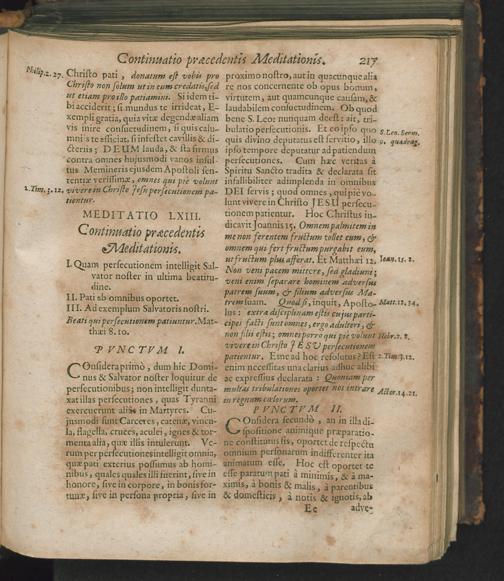 Continuatio præcedentis Meditationis. 217
Philip. 1. 27.
Christo pati, donatum est vobis pro
Christo non solum ut in eum credatis, sed
ut etiam pro illo patiamini. Si idem ti-
bi acciderit; si mundus te irrideat, E-
xempli gratia, quia vitæ degendæ aliam
vis inire consuetudinem, si quis calu-
mniis te afficiat, si infestet cavillis & di-
cteriis; DEUM lauda, & sta firmus
contra omnes hujusmodi vanos insul-
tus Memineris ejusdem Apostoli sen-
tentiæ verissimæ, omnes qui piè volunt
2. Tim. 3. 12.
vivere in Christo Jesu persecutionem pa-
tientur.
MEDITATIO LXIII.
Continuatio præcedentis
Meditationis.
I. Quam persecutionem intelligit Sal-
vator noster in ultima beatitu-
dine.
II. Pati ab omnibus oportet.
III. Ad exemplum Salvatoris nostri.
Beati qui persecutionem patiuntur. Mat-
thæi 8. 10.
PUNCTUM I.
Considera primò, dum hic Domi-
nus & Salvator noster loquitur de
persecutionibus; non intelligit dunta-
xat illas persecutiones, quas Tyranni
exercuerunt aliàs in Martyres. Cu-
jusmodi sunt Carceres, catenæ, vincu-
la, flagella, cruces, aculei, ignes & tor-
menta alia, quæ illis intulerunt. Ve-
rum per persecutiones intelligit omnia,
quæ pati exterius possumus ab homi-
nibus, quales quales illi fuerint, sive in
honore, sive in corpore, in bonis for-
tunæ, sive in persona propria, sive in
proximo nostro, aut in quacunque alia
re nos concernente ob opus bonum,
virtutem, aut quamcunque causam, &
laudabilem consuetudinem. Ob quod
bene S. Leo: nunquam deest: ait, tri-
bulatio persecutionis. Et eo ipso quo
S. Leo. Serm.
quis divino deputatus est servitio, illo
9. quadrag.
ipso tempore deputatur ad patiendum
persecutiones. Cum hæc veritas à
Spiritu Sancto tradita & declarata sit
infallibiliter adimplenda in omnibus
DEI servis; quod omnes, qui piè vo-
lunt vivere in Christo JESU persecu-
tionem patientur. Hoc Christus in-
dicavit Joannis 15. Omnem palmitem in
me non ferentem fructum tollet eum, &
omnem qui fert fructum purgabit eum,
ut fructum plus afferat. Et Matthæi 12.
Joan. 15. 2.
Non veni pacem mittere, sed gladium;
veni enim separare hominem adversus
patrem suum, & filiam adversus Ma-
trem suam. Quòd si, inquit, Aposto-
Matt. 12. 34.
lus: extra disciplinam estis cujus parti-
cipes facti sunt omnes, ergo adulteri, &
non filii estis; omnes porro qui piè volunt
Hebr. 2. 8.
vivere in Christo JESU persecutionem
patientur. Etne ad hoc resolutus? Est
2. Tim. 3. 12.
enim necessitas una clarius adhuc alibi
ac expressius declarata: Quoniam per
multas tribulationes oportet nos intrare
Actor. 14. 21.
in regnum cœlorum.
PUNCTUM II.
Considera secundò, an in illa di-
spositione animique præparatio-
ne constitutus sis, oportet de respectu
omnium personarum indifferenter ita
animatum esse. Hoc est oportet te
esse paratum pati à minimis, & à ma-
ximis, à bonis & malis, à parentibus
& domesticis, à notis & ignotis, ab
Ee adver-